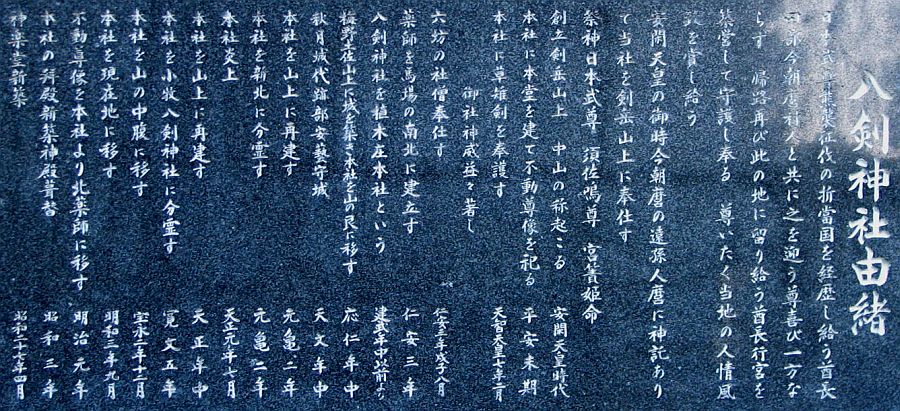 八剣神社由緒
日本武尊熊襲征伐の折當国を経歴し給う首長
田部今朝麿村人と共に之を迎う尊喜び一方な
らず 帰路再び此の地に留り給う首長行宮を
築営して守護し奉る 尊いたく当地の人情風
致を賞し給う
安閑天皇の御時今朝麿の遠孫人麿に神託あり
て当社を剣岳山上に奉仕す
祭神日本武尊 須佐嗚尊 宮簀姫命
創立剣岳山上 中山の称起こる 安閑天皇時代
本社に本堂を建て不動尊像を祀る 平安末期
本社に草雉剣を奉護す 天智天皇七年二月
御社神威益々著し
六坊の社僧奉仕す 仁安三年戊子八月
薬師を馬場の南北に建立す 仁安三年
八剣神社を植木庄本社という 建武年中以前より
梅野土佐山上に城を築き本社を山の艮に移す 応仁年中
秋月城代跡部安藝守城 天文年中
本社を山上に再建す 元亀二年
本社を新北に分霊す 元亀二年
本社炎上 天正元年七月
本社を山上に再建す 天正年中
本社を小牧八剣神社に分霊す 寛文五年
本社を山の中腹に移す 宝永二年十二月
本社を現在地に移す 明和三年九月
不動尊像を本社より北薬師に移す 明治元年
本社の拜殿新築神殿葺替 昭和三年
神楽堂新築 昭和二十七年四月